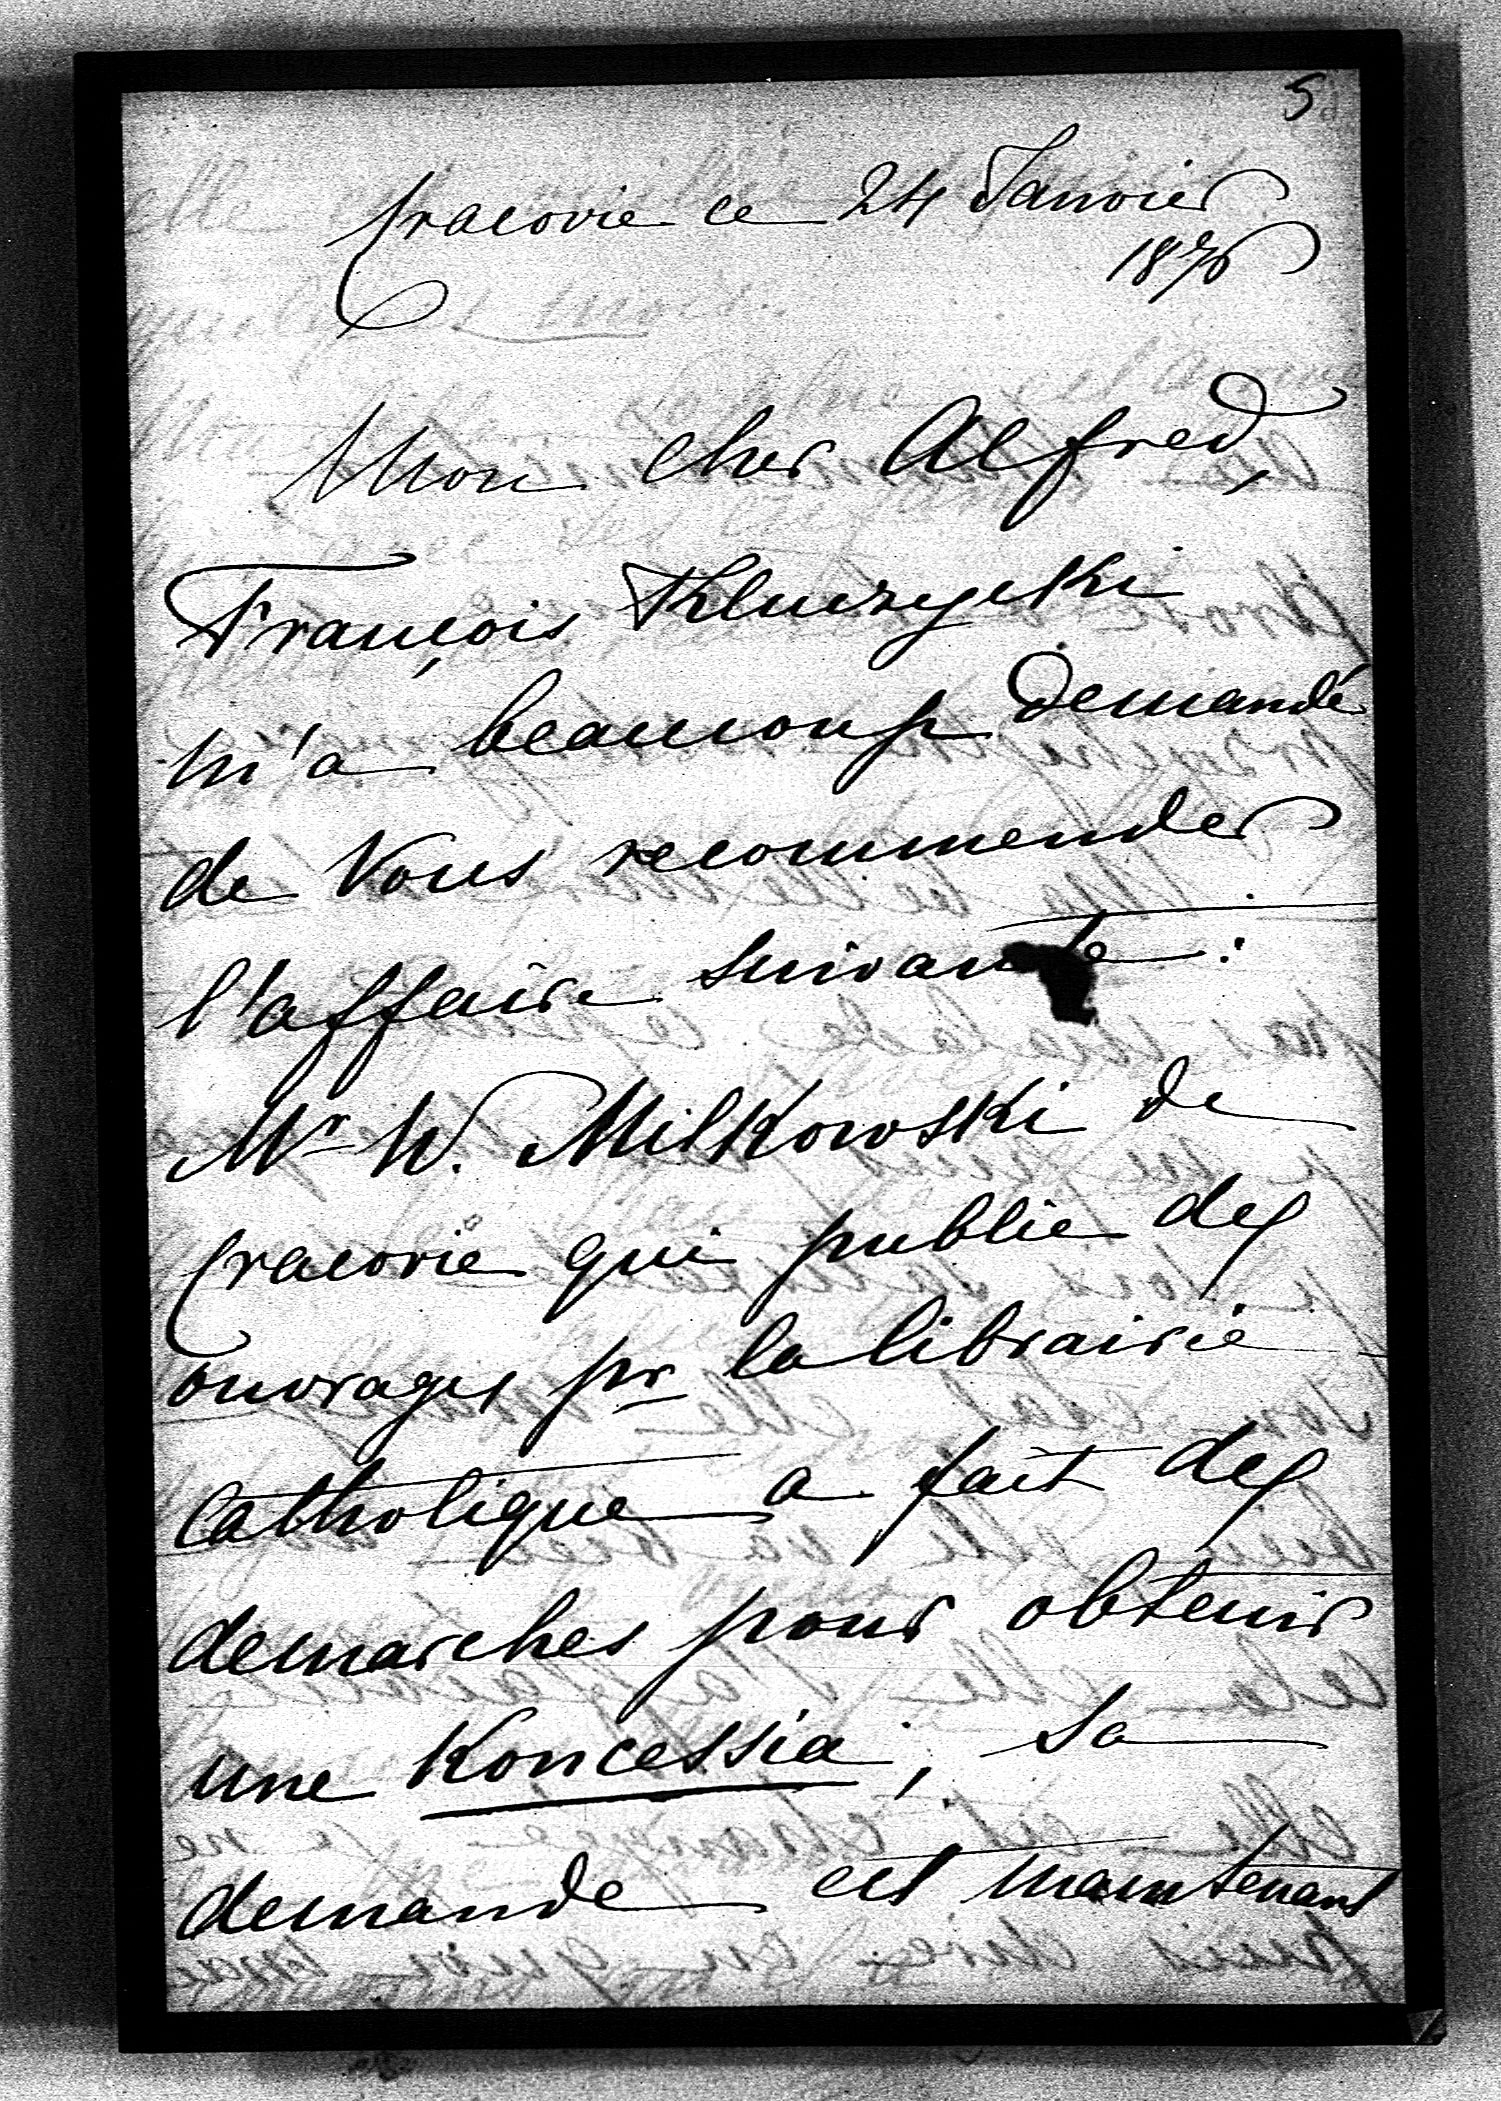 5
Cracovie ce 24 Janvier
1876
Mon cher Alfred,
François Kluczycki
m'a beaucoup demandé
de Vous recommender
l'affaire suivante :
Mr W. Milkowski de
Cracovie qui publie des
ouvrages pr la librairie
Catholique a fait des
demarches pour obtenir
une Koncessia ; sa
demande est maintenant